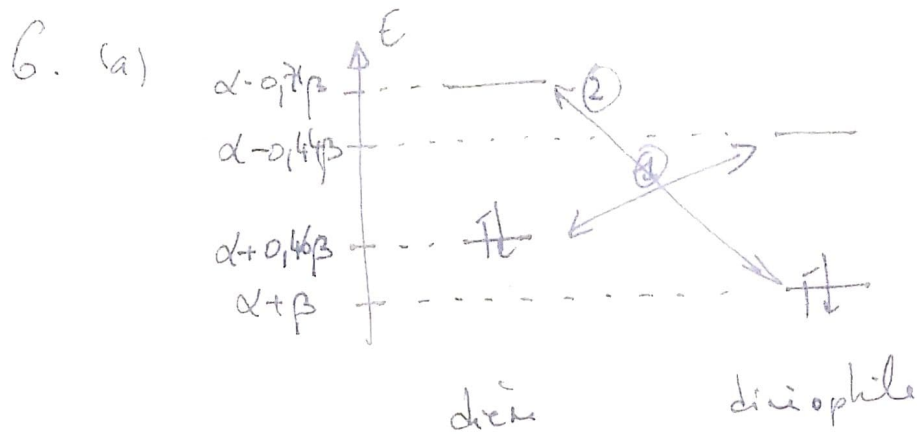 6. (a)
E
α-0,71β
②
α-0,44β
①
α+0,46β
α+β
diène diénophile